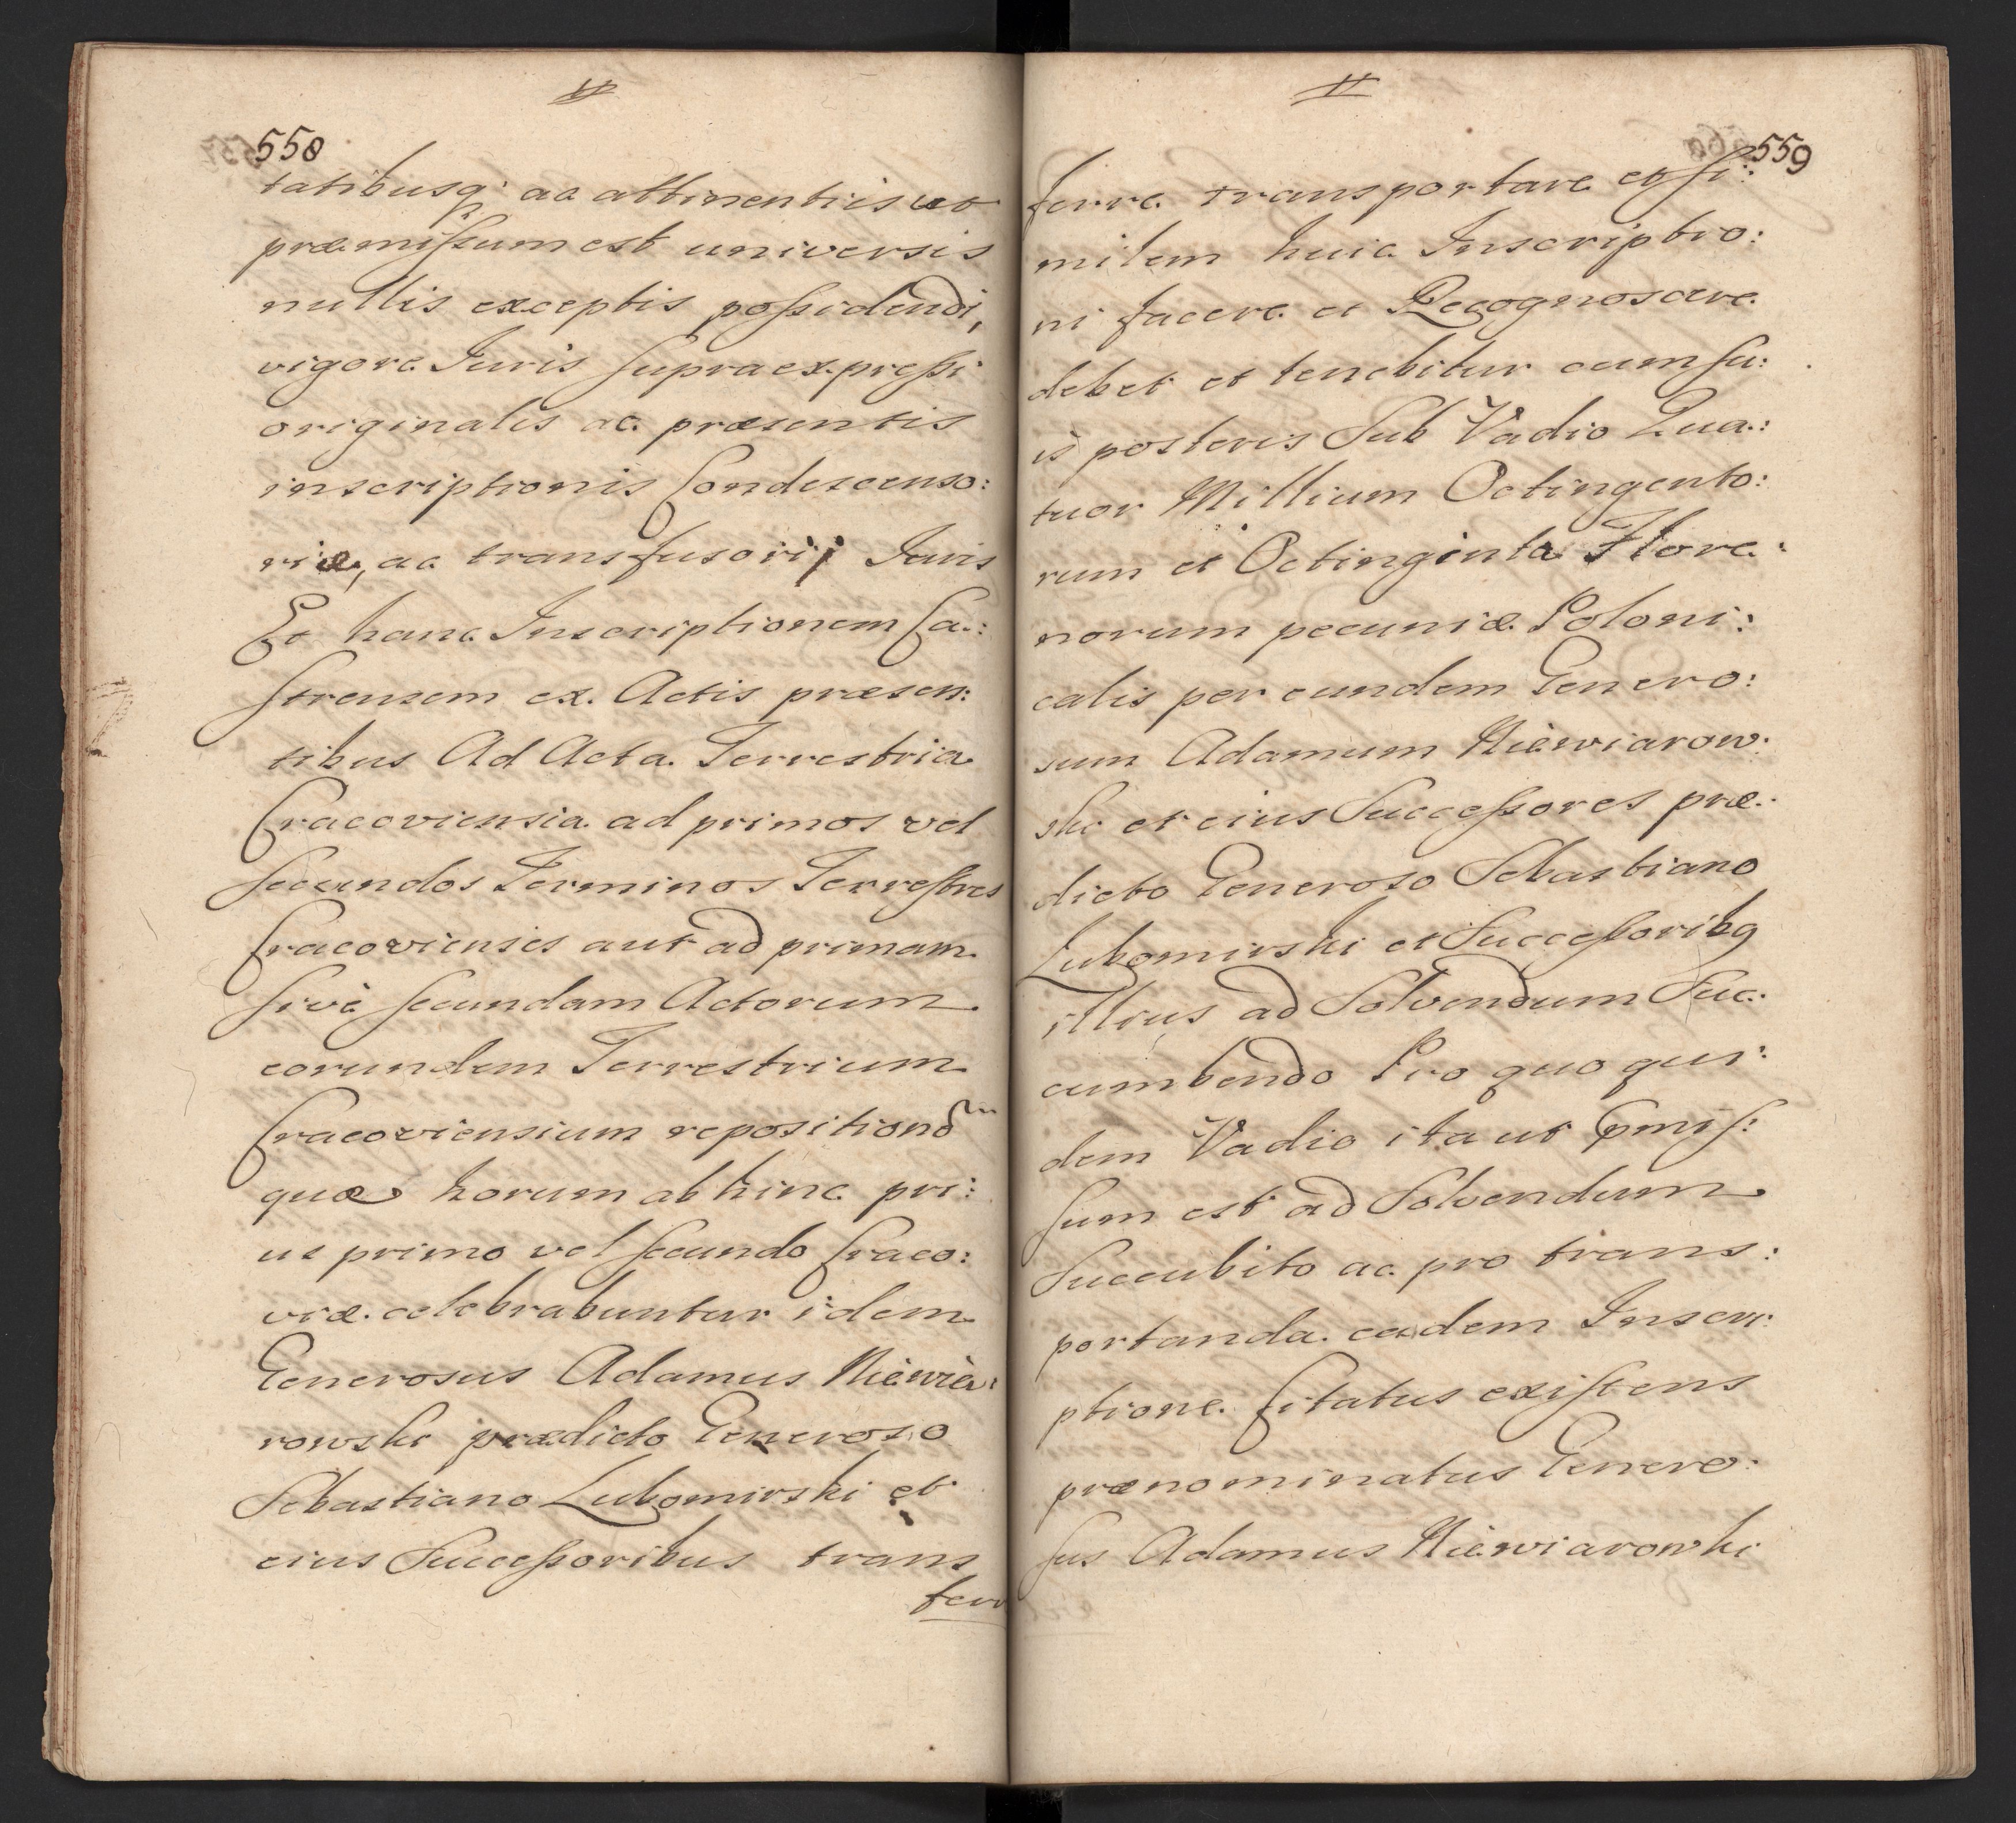 558
tatibusq; ac attinentiis ut
præmissum est universis
nullis exceptis possidendi,
vigore Iuris supra expressi
originalis ac præsentis
inscriptionis Condescenso:
riæ, ac transfusorij Iuris
Et hanc Inscriptionem Ca:
strensem ex Actis præsen:
tibus Ad Acta Terrestria
Cracoviensia ad primos vel
secundos Terminos Terrestres
Cracovienses aut ad primam
sivè secundam Actorum
eorundem Terrestrium
Cracoviensium repositionē
quæ horum ab hinc pri:
us primo vel secundo Craco:
viæ celebrabuntur idem
Generosus Adamus Niewia:
rowski prædicto Generoso
Sebastiano Lubomirski et
eius Successoribus trans
ferr
559
ferre transportare et si:
milem huic Inscriptio:
ni facere et Recognoscere
debet et tenebitur cum su:
is posteris Sub Vadio Qua:
tuor Millium Octingento:
rum et Octinginta Flore:
norum pecuniæ Poloni:
calis per eundem Genero:
sum Adamum Niewiarow:
ski et eius Successores præ:
dicto Generoso Sebastiano
Lubomirski et Successoribq
illius ad Solvendum Suc:
cumbendo Pro quo qui:
dem Vadio ita ut pmis:
sum est ad Solvendum
Succubito ac pro trans:
portanda eadem Inscri:
ptione Citatus existens
prænominatus Genero:
sus Adamus Niewiarowski